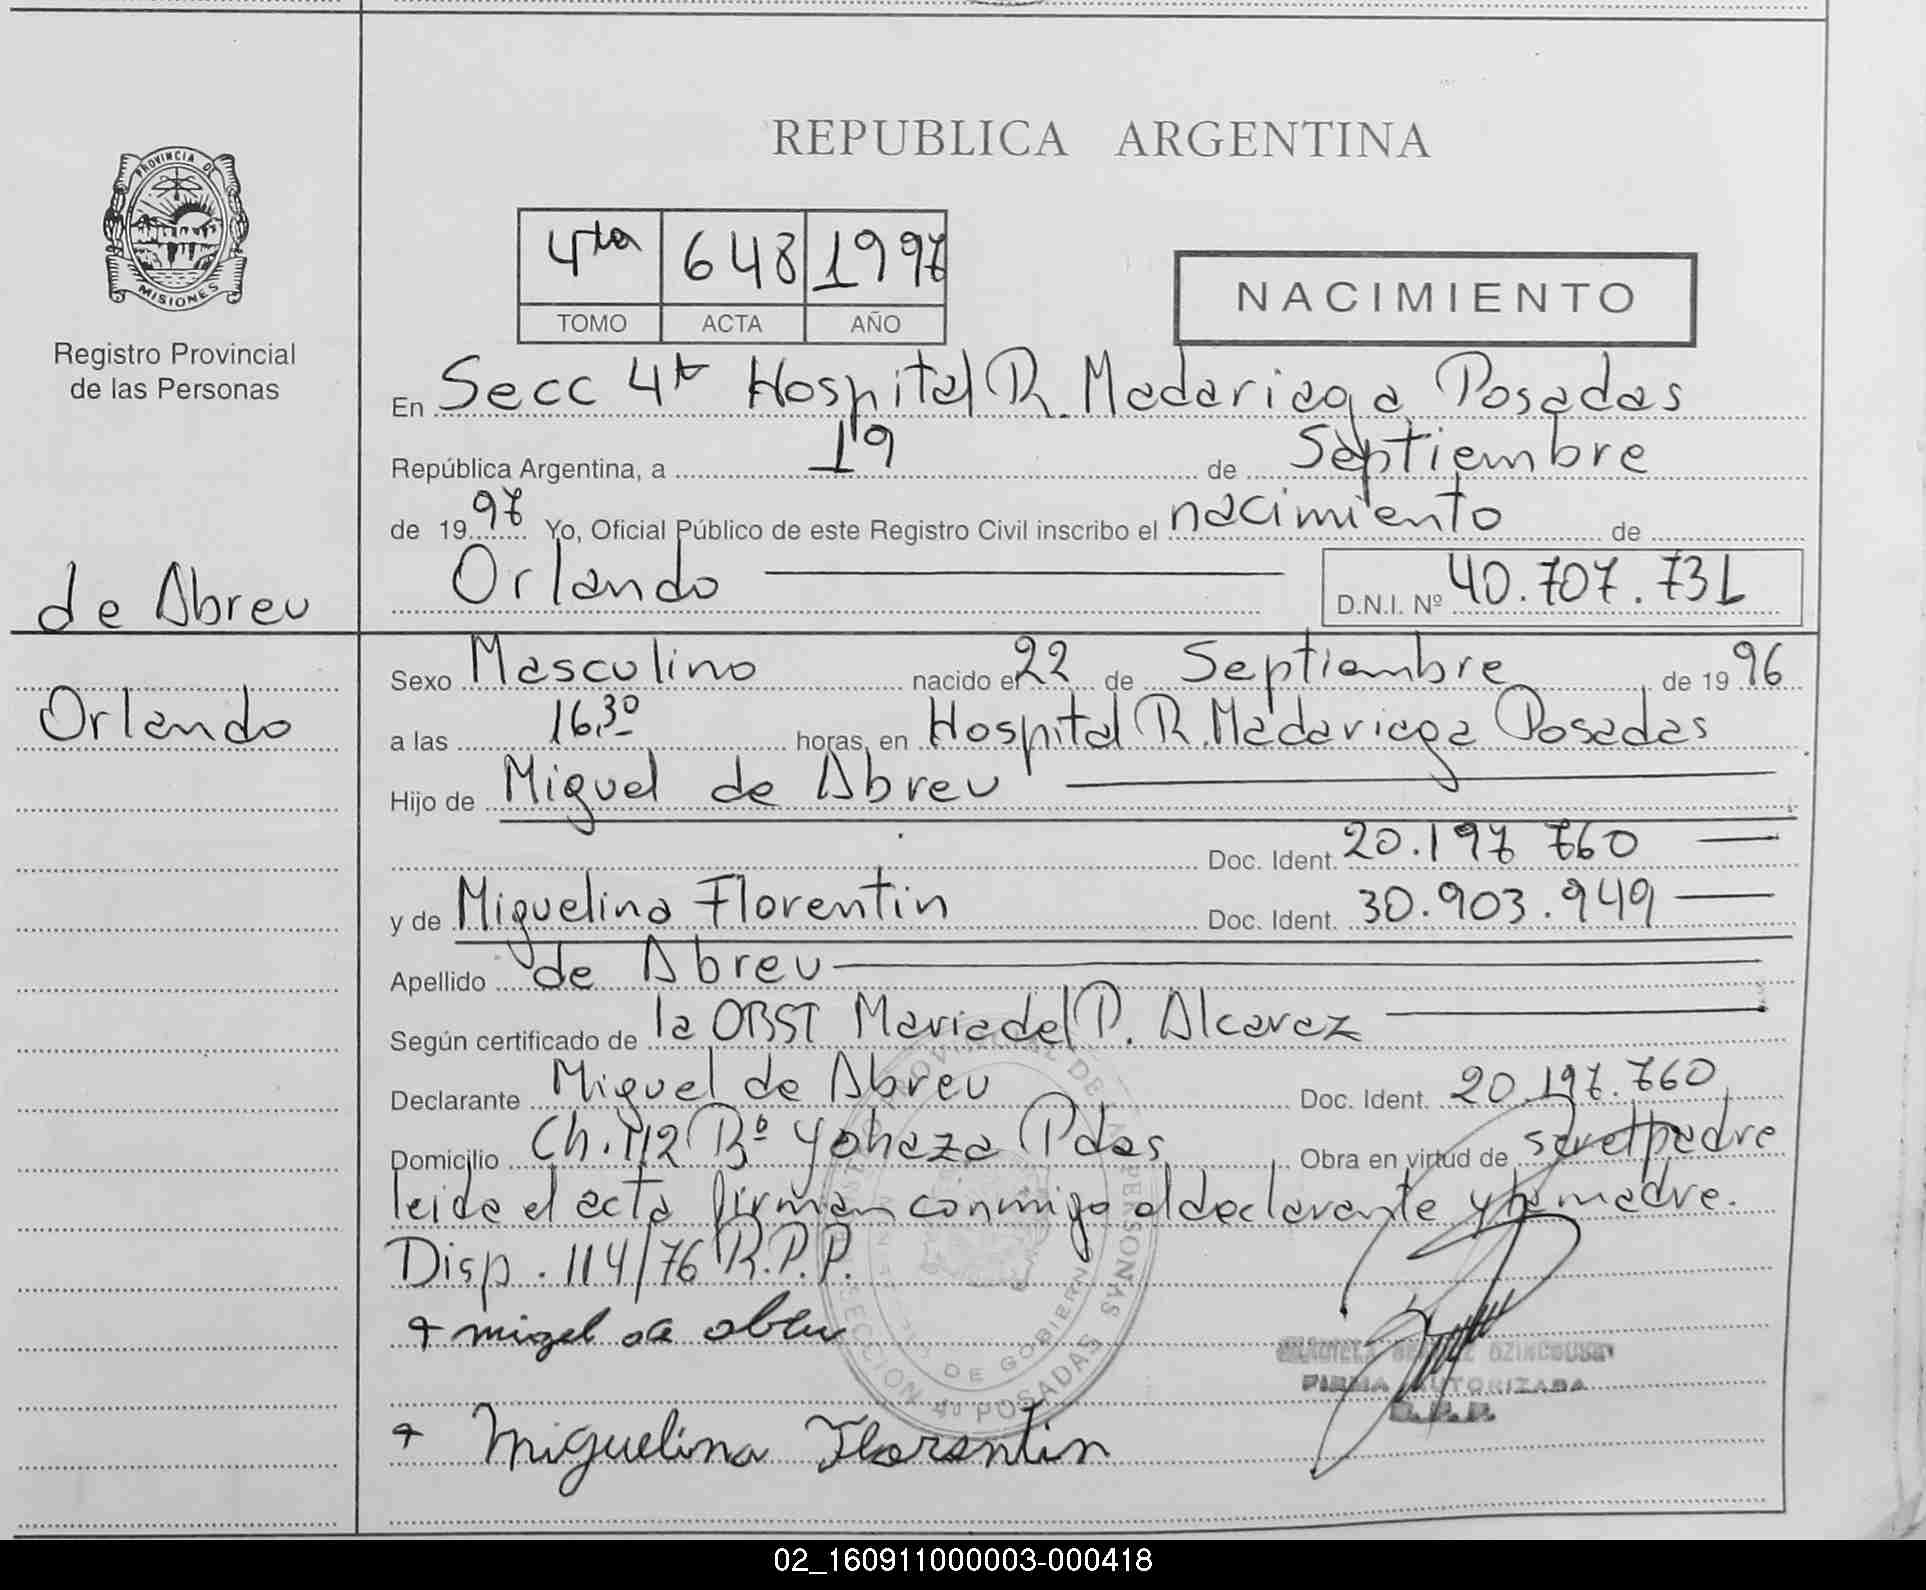 PROVINCIA DE
MISIONES
Registro Provincial
de las Personas
de Abreu
Orlando
REPUBLICA ARGENTINA
4ta 648 1997
TOMO ACTA AÑO
NACIMIENTO
En Secc 4ta Hospital R. Madariaga Posadas
República Argentina, a 19 de Septiembre
de 1997 Yo, Oficial Público de este Registro Civil inscribo el nacimiento de
Orlando D.N.I. Nº 40.707.731
Sexo Masculino nacido el 22 de Septiembre de 1996
a las 16,30 horas, en Hospital R. Madariaga Posadas
Hijo de Miguel de Abreu
Doc. Ident. 20.197.760
y de Miguelina Florentin Doc. Ident. 30.903.949
Apellido de Abreu
Según certificado de la OBST Maria del P. Alcaraz
Declarante Miguel de Abreu Doc. Ident. 20.197.760
Domicilio Ch. 112 Bº Yohaza Pdas Obra en virtud de ser el padre
leida el acta firman conmigo el declarante y la madre.
Disp. 114/76 R.P.P.
+ migel de abreu
FIRMA AUTORIZADA
+ Miguelina Florentin
PROVINCIAL DE LAS PERSONAS
SECCION 4º POSADAS
DE GOBIERN
02_160911000003-000418